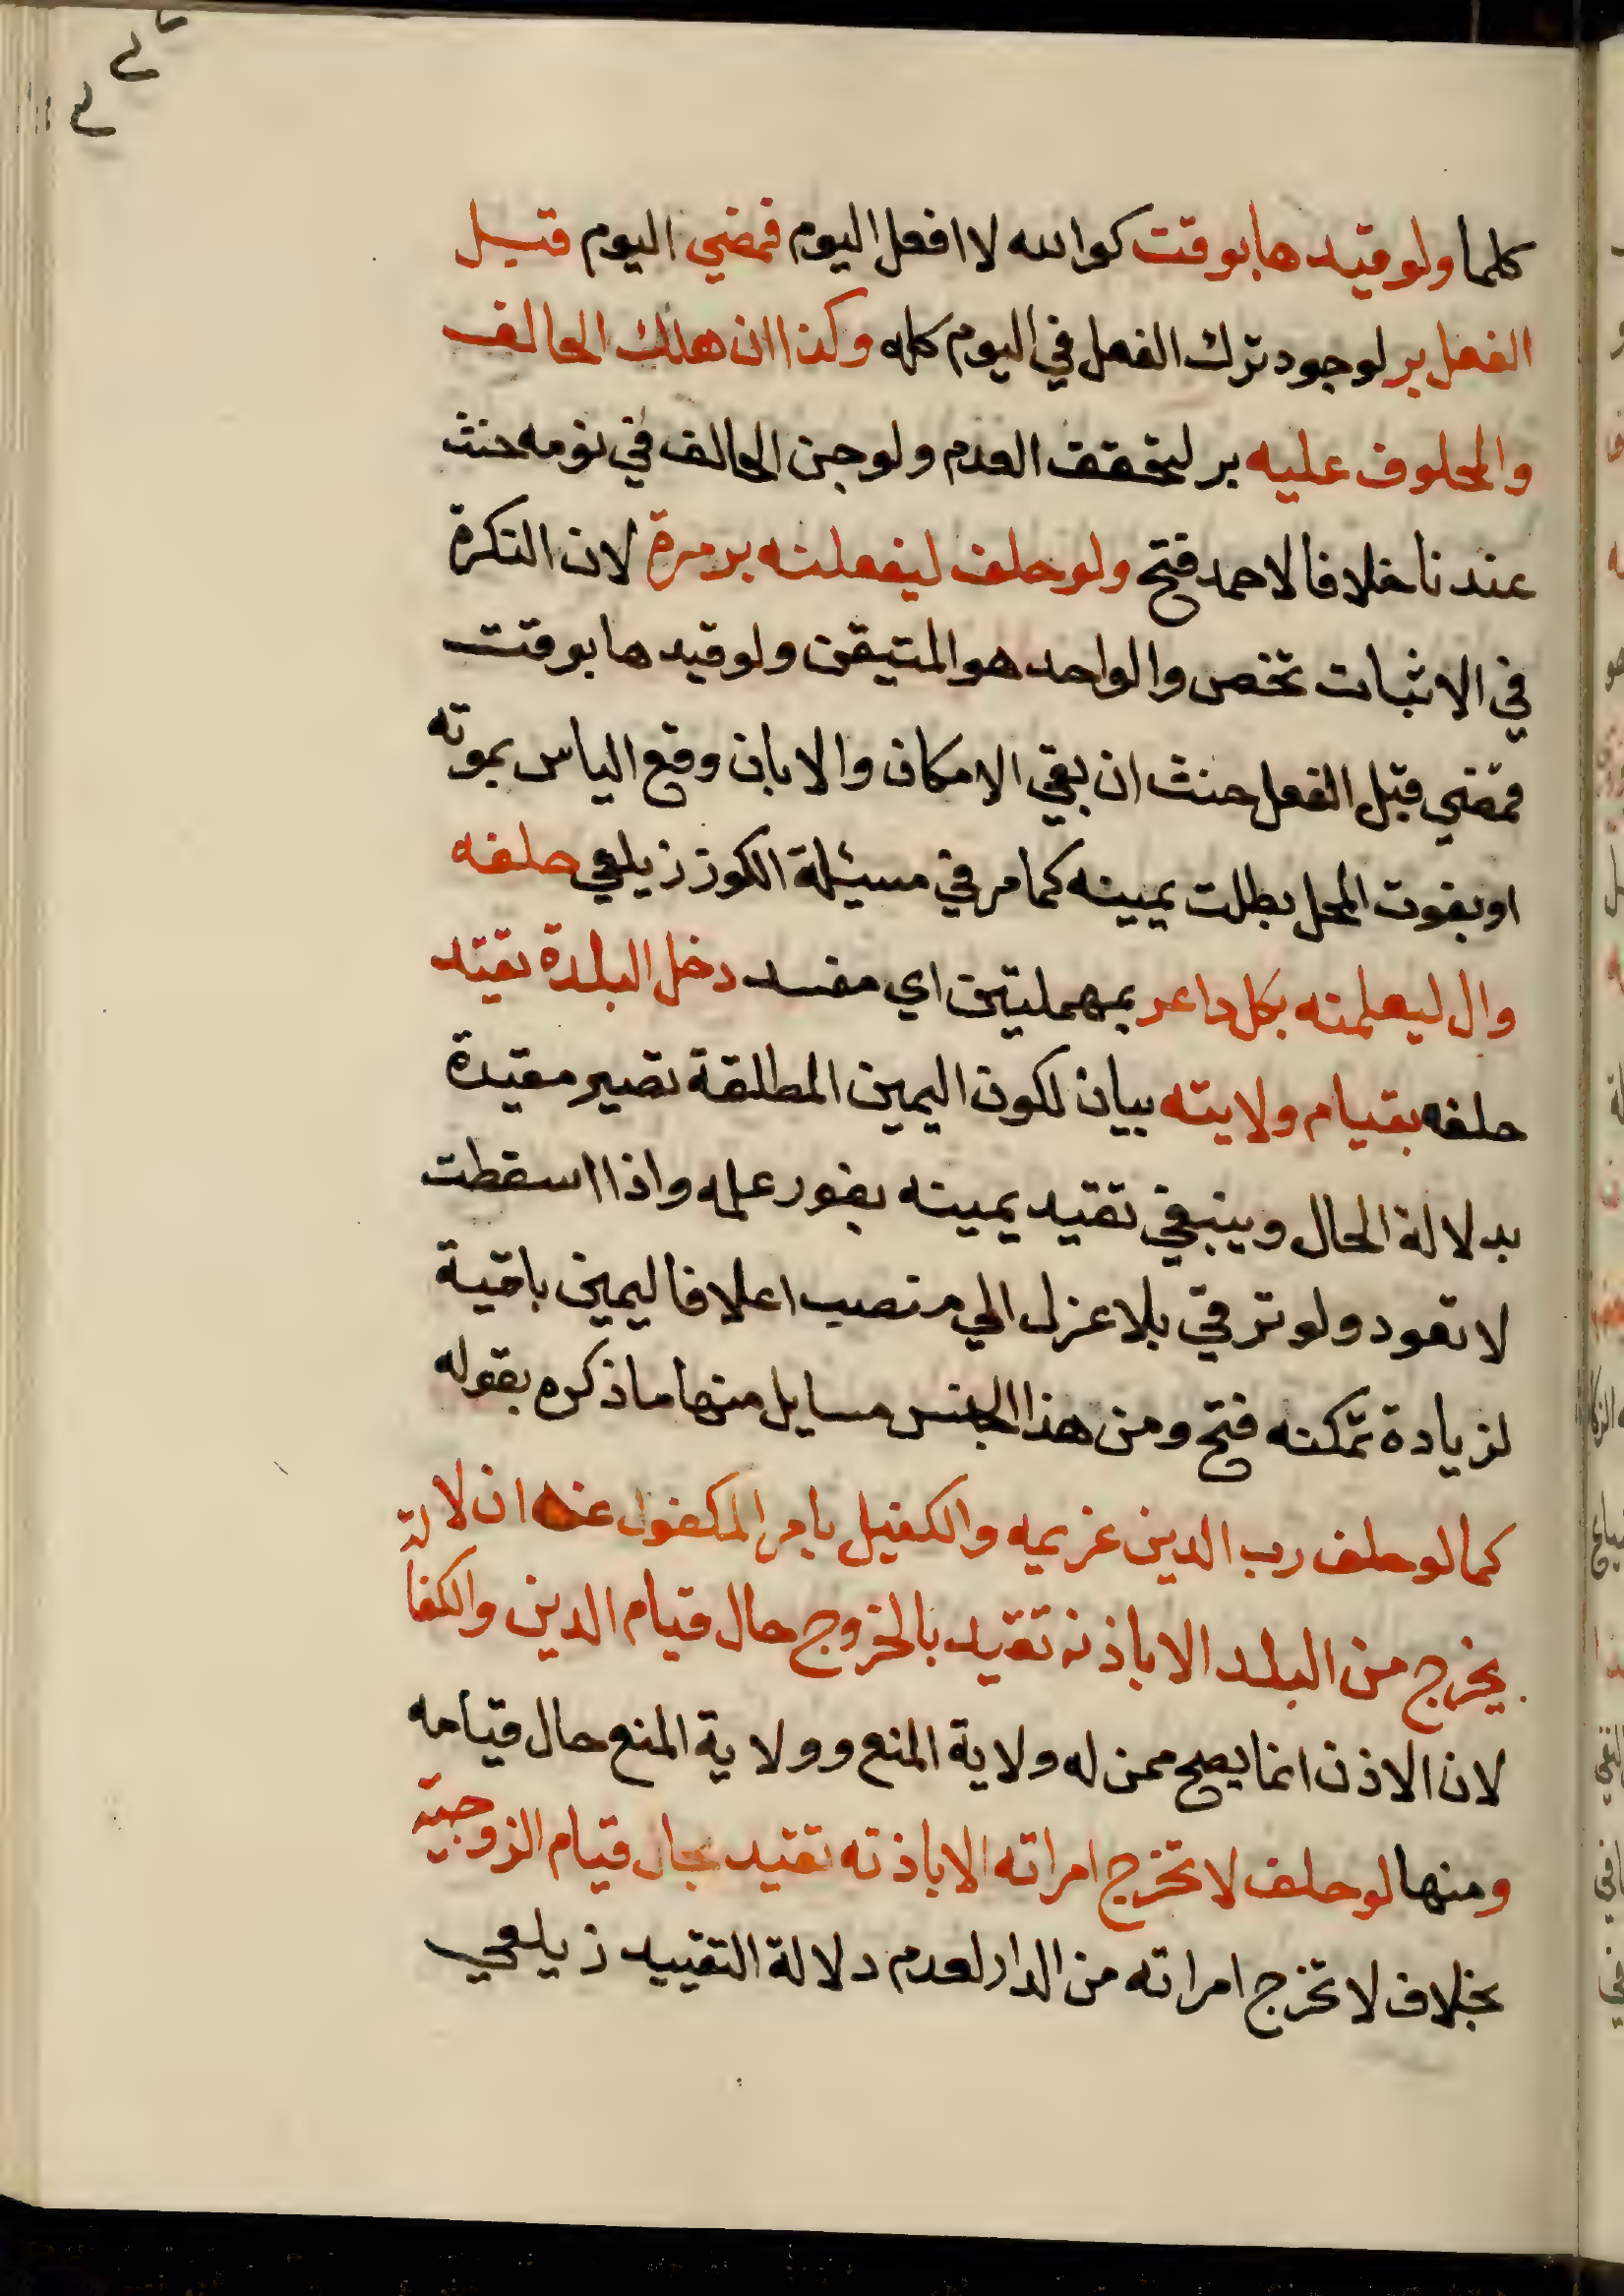 كلما ولو قيدها بوقت كوالله لا افعل اليوم فمضي اليوم قبل
الفعل بر لوجود ترك الفعل في اليوم كله وكذا ان هلك الحالف
والمحلوف عليه بر لتحقق العدم ولو جن الحالف في يومه حنث
عندنا خلافا لاحمد فتح ولو حلف ليفعلنه بر مرة لان النكرة
في الاثبات تخص والواحد هو المتيقن ولو قيدها بوقت
فمضي قبل الفعل حنث ان بقي الامكان والا بان وقع الياس بموته
او بفوت المحل بطلت يمينه كما مر في مسئلة الكوز زيلعي حلفه
وال ليعلمنه بكل داعر بمهملتين اي مفسد دخل البلدة تقيد
حلفه بقيام ولايته بيان لكون اليمين المطلقة تصير مقيدة
بدلالة الحال وينبغي تقيد يمينه بفور علمه واذا اسقطت
لا تعود ولو ترقي بلا عزل الي منصب اعلا فاليمين باقية
لزيادة تمكنه فتح ومن هذا الجنس مسايل منها ما ذكره بقوله
كما لو حلف رب الدين غريمه والكفيل بامر المكفول عنه ان لا
يخرج من البلد الا باذنه تقيد بالخروج حال قيام الدين والكفالة
لان الاذن انما يصح ممن له ولاية المنع وولاية المنع حال قيامه
ومنها لو حلف لا تخرج امراته الا باذنه تقيد بحال قيام الزوجية
بخلاف لا تخرج امراته من الدار لعدم دلالة التقييد زيلعي